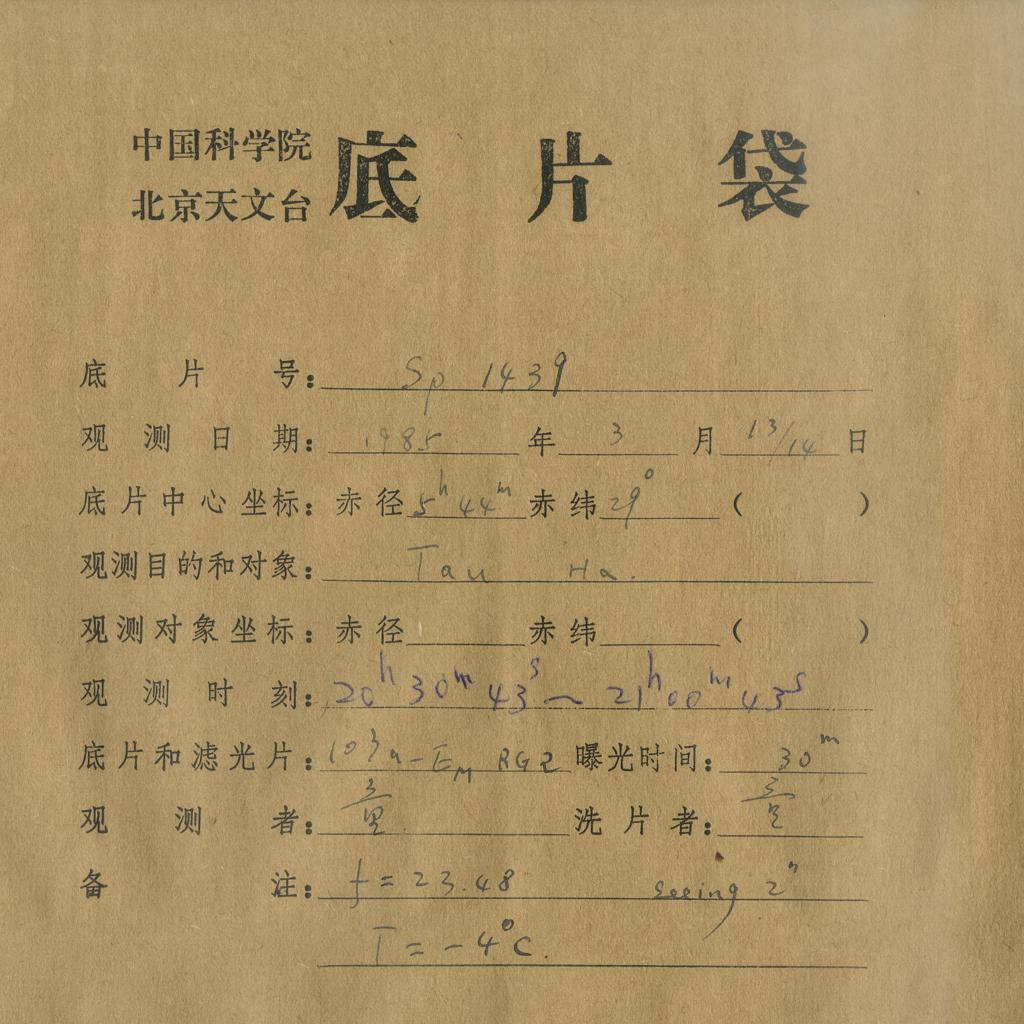 中国科学院
北京天文台
底片袋
底片号: Sp 1439
观测日期: 1985 年 3 月 13/14 日
底片中心坐标: 赤径 5h 44m 赤纬 29° ( )
观测目的和对象: Tau Hα.
观测对象坐标: 赤径 赤纬 ( )
观测时刻: 20h 30m 43s ~ 21h 00m 43s
底片和滤光片: 103a-EM RG2 曝光时间: 30m
观测者: 洗片者:
备注: f = 23.48 seeing 2"
T = -4°C.